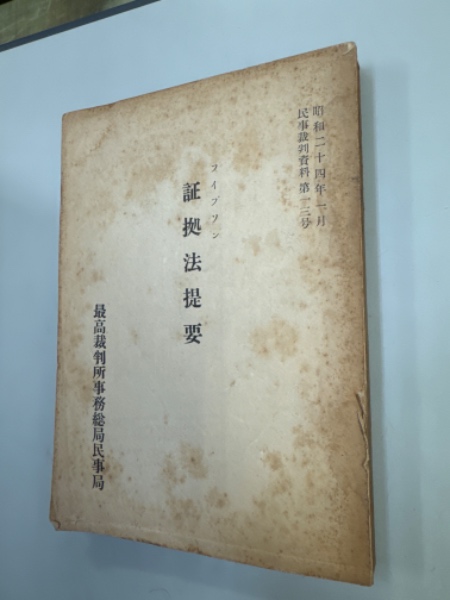 昭和二十四年一月
民事裁判資料第一三号
フイプソン
証拠法提要
最高裁判所事務総局民事局